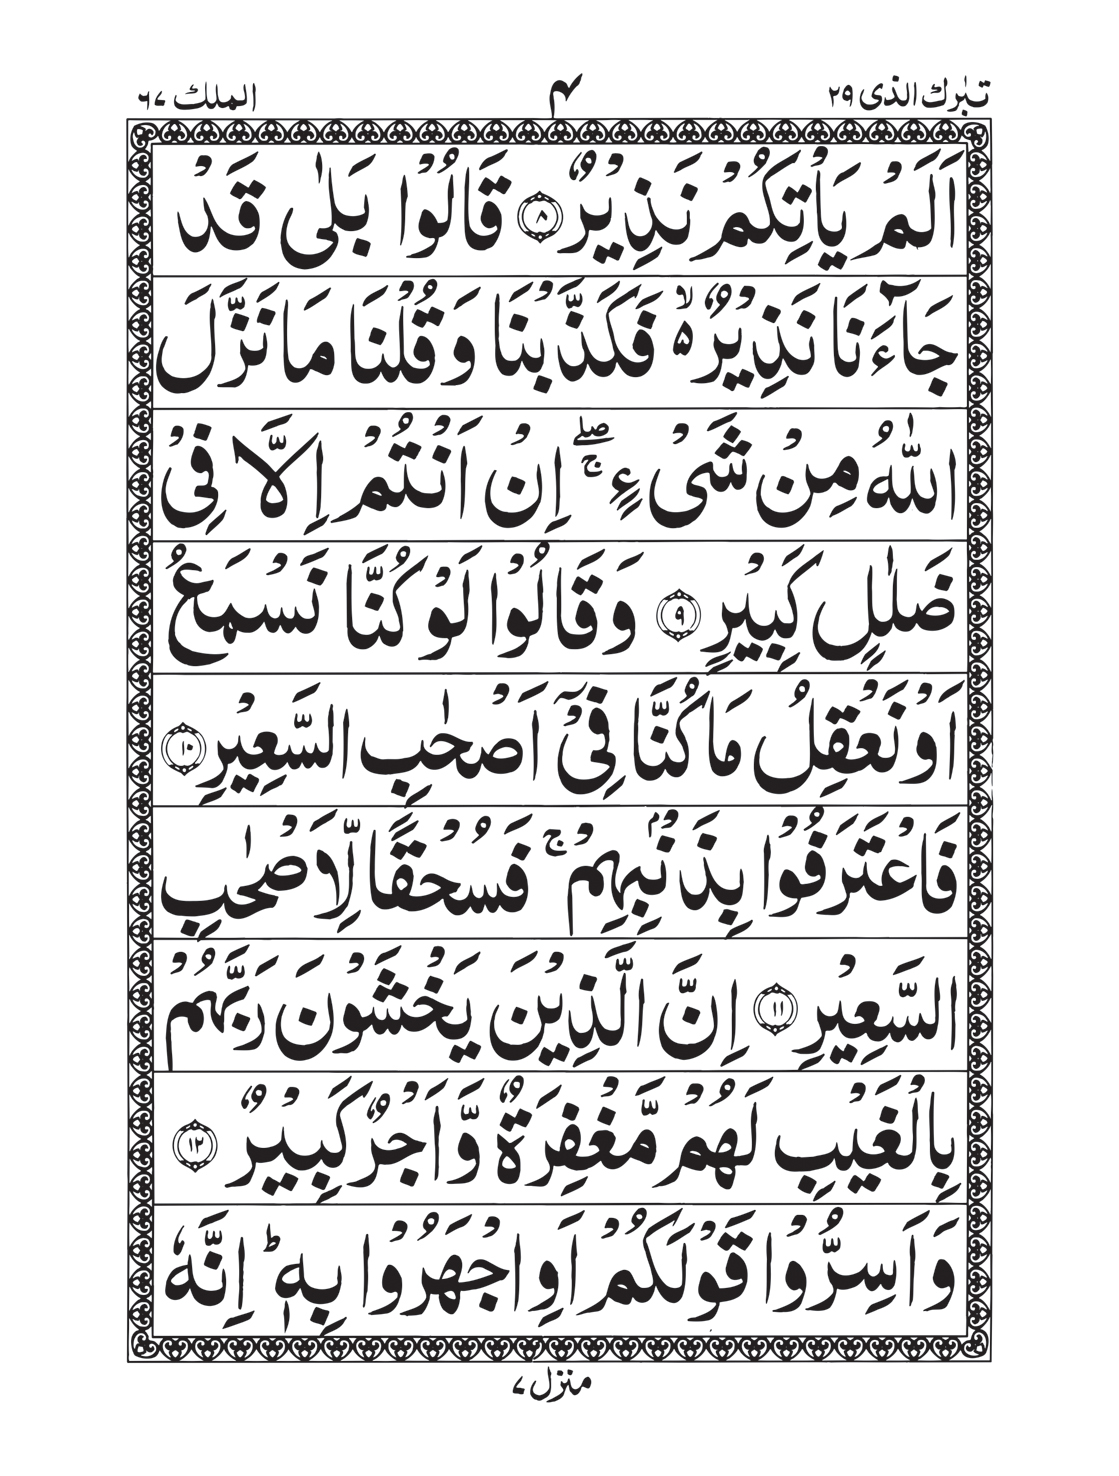 تبٰرك الذی ۲۹ ۴ الملك ۶۷
اَلَمْ يَاْتِكُمْ نَذِيْرٌ ۝۸ قَالُوْا بَلٰی قَدْ
جَآءَنَا نَذِيْرٌ ۬ۙ فَكَذَّبْنَا وَقُلْنَا مَا نَزَّلَ
اللّٰهُ مِنْ شَیْءٍ ۖۚ اِنْ اَنْتُمْ اِلَّا فِیْ
ضَلٰلٍ كَبِيْرٍ ۝۹ وَقَالُوْا لَوْ كُنَّا نَسْمَعُ
اَوْ نَعْقِلُ مَا كُنَّا فِیْۤ اَصْحٰبِ السَّعِيْرِ ۝۱۰
فَاعْتَرَفُوْا بِذَنْۢبِهِمْ ۚ فَسُحْقًا لِّاَصْحٰبِ
السَّعِيْرِ ۝۱۱ اِنَّ الَّذِيْنَ يَخْشَوْنَ رَبَّهُمْ
بِالْغَيْبِ لَهُمْ مَّغْفِرَةٌ وَّاَجْرٌ كَبِيْرٌ ۝۱۲
وَاَسِرُّوْا قَوْلَكُمْ اَوِ اجْهَرُوْا بِهٖ ؕ اِنَّهٗ
منزل ۷